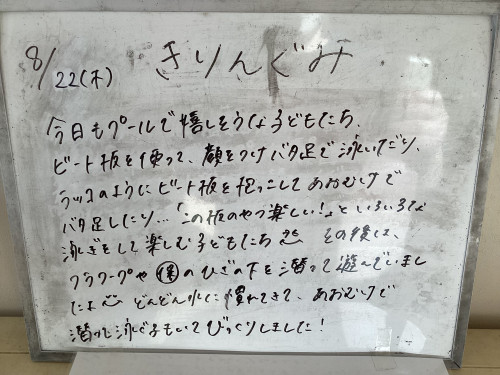 8/22(木) きりんぐみ
今日もプールで嬉しそうな子どもたち、
ビート板を使って、顔をつけバタ足で泳いだり、
ラッコのようにビート板を抱っこしてあおむけで
バタ足したり…「この板のやつ楽しい!」といろいろな
泳ぎをして楽しむ子どもたち その後は、
フラフープや保のひざの下を潜って遊んでいまし
たよ どんどん水に慣れてきて、あおむけで
潜って泳ぐ子もいてびっくりしました!